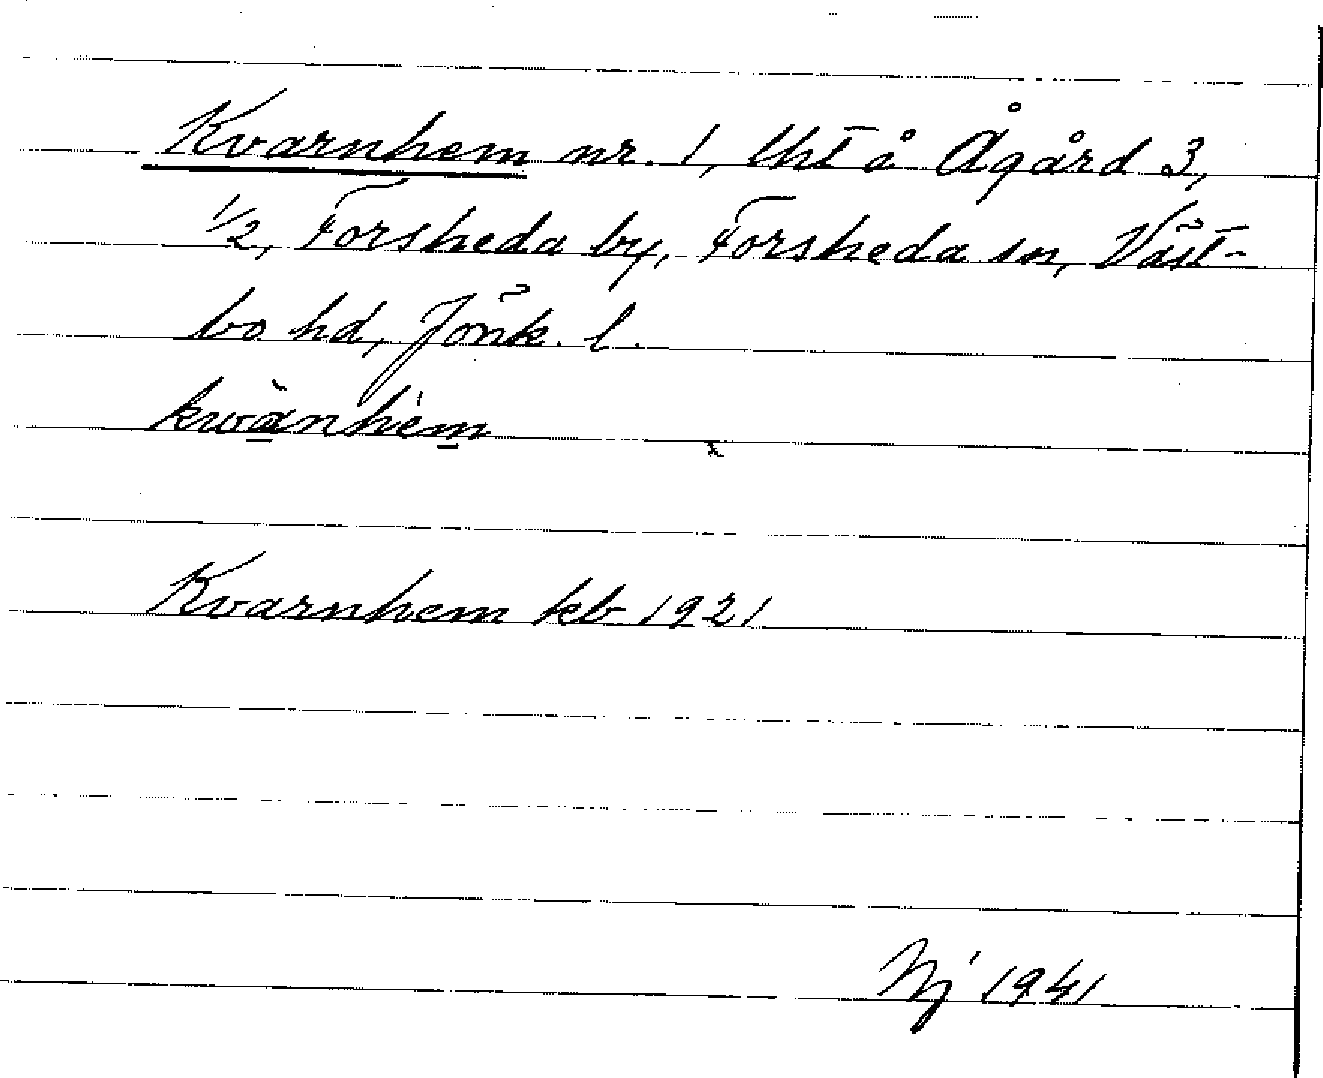 Kvarnhem nr. 1, lht å Ågård 3,
1/2, Forsheda by, Forsheda sn, Väst-
bo hd, Jönk. l.
kwànhém
Kvarnhem kb 1921
Nj 1941